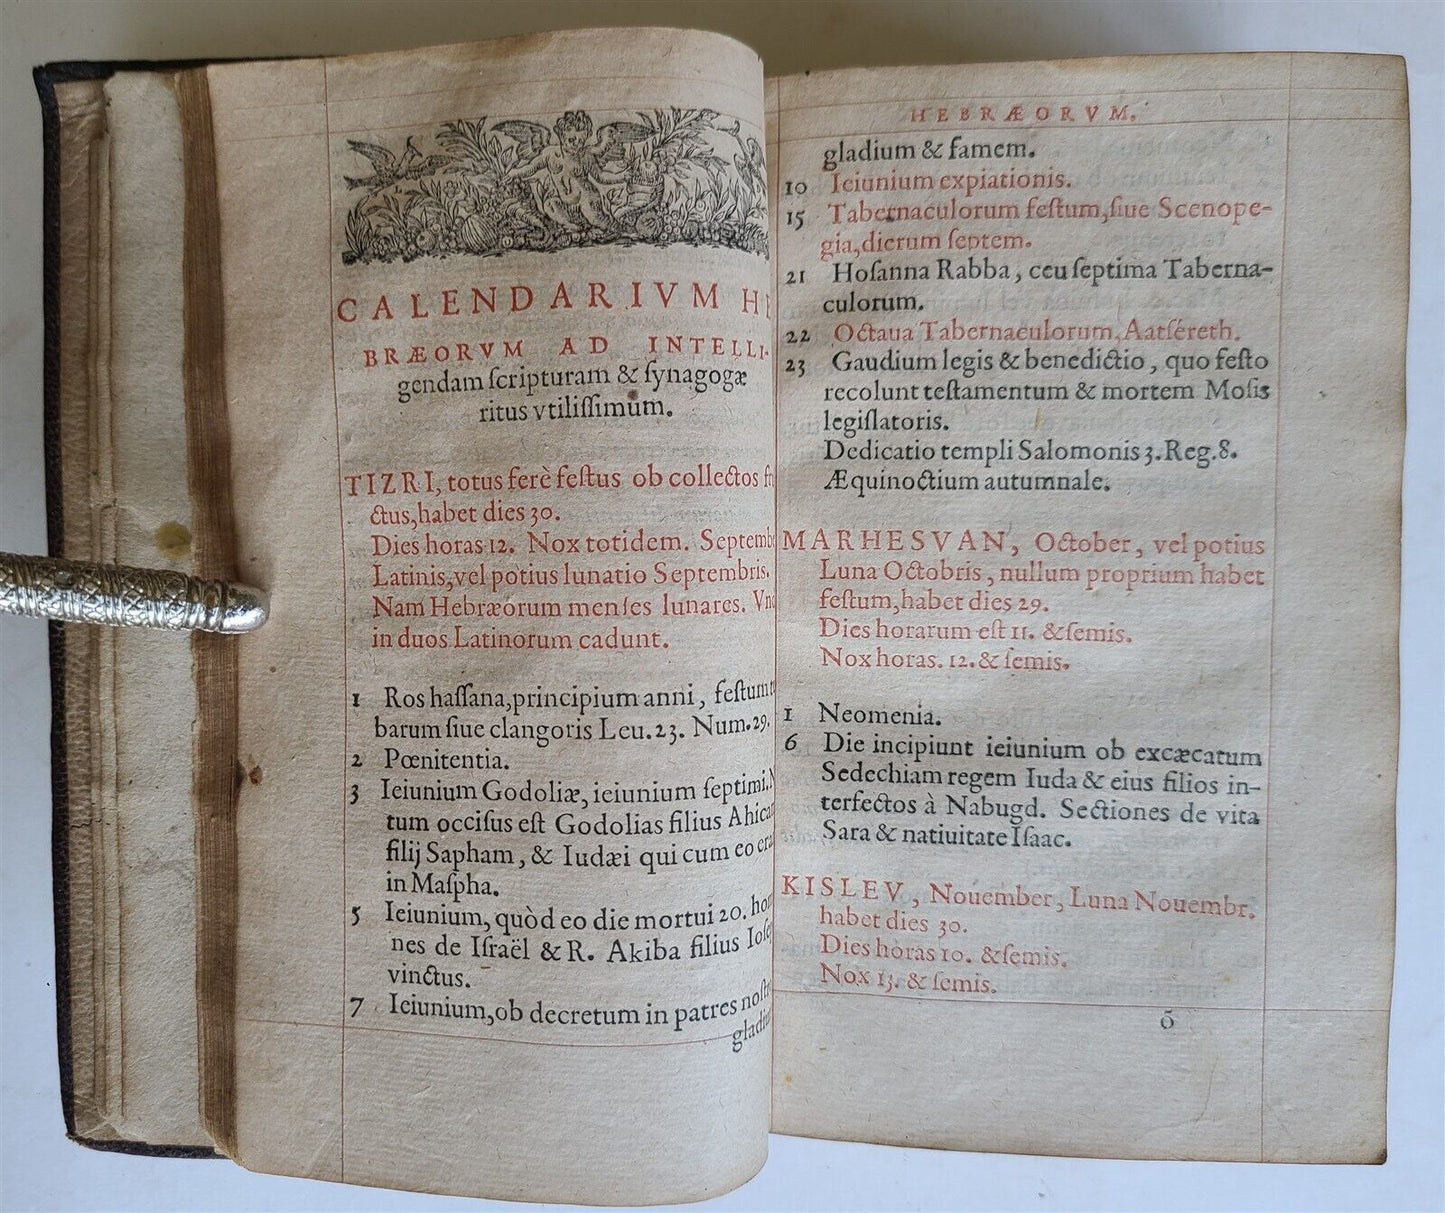 CALENDARIVM HE
BRÆORVM AD INTELLI-
gendam ſcripturam & ſynagogæ
ritus vtiliſſimum.
TIZRI, totus ferè feſtus ob collectos fru
ctus, habet dies 30.
Dies horas 12. Nox totidem. Septemb
Latinis, vel potius lunatio Septembris.
Nam Hebræorum menſes lunares. Vnd
in duos Latinorum cadunt.
1 Ros haſſana, principium anni, feſtum t
barum ſiue clangoris Leu. 23. Num. 29.
2 Pœnitentia.
3 Ieiunium Godoliæ, ieiunium ſeptimi. N
tum occiſus eſt Godolias filius Ahica
filij Sapham, & Iudæi qui cum eo era
in Maſpha.
5 Ieiunium, quòd eo die mortui 20. hom
nes de Iſraël & R. Akiba filius Ioſe
vinctus.
7 Ieiunium, ob decretum in patres noſt
gladiu
HEBRÆORVM.
gladium & famem.
10 Ieiunium expiationis.
15 Tabernaculorum feſtum, ſiue Scenope-
gia, dierum ſeptem.
21 Hoſanna Rabba, ceu ſeptima Taberna-
culorum.
22 Octaua Tabernaculorum, Aatſéreth.
23 Gaudium legis & benedictio, quo feſto
recolunt teſtamentum & mortem Moſis
legiſlatoris.
Dedicatio templi Salomonis 3. Reg. 8.
Æquinoctium autumnale.
MARHESVAN, October, vel potius
Luna Octobris, nullum proprium habet
feſtum, habet dies 29.
Dies horarum eſt 11. & ſemis.
Nox horas. 12. & ſemis.
1 Neomenia.
6 Die incipiunt ieiunium ob excæcatum
Sedechiam regem Iuda & eius filios in-
terfectos à Nabugd. Sectiones de vita
Sara & natiuitate Iſaac.
KISLEV, Nouember, Luna Nouembr.
habet dies 30.
Dies horas 10. & ſemis.
Nox 13. & ſemis.
õ